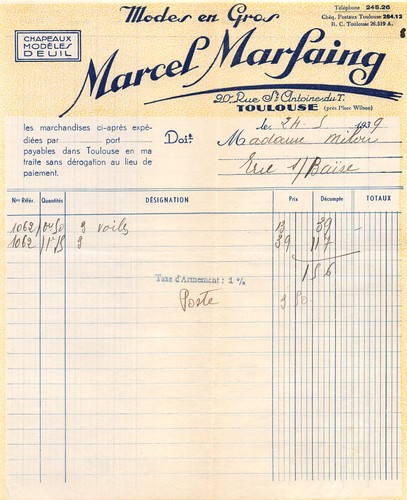 Modes en Gros
Téléphone 245.26
Chèq. Postaux Toulouse 284.12
R. C. Toulouse 26.519 A.
CHAPEAUX
MODÈLES
DEUIL
Marcel Marfaing
20, Rue St Antoine du T.
TOULOUSE (près Place Wilson)
les marchandises ci-après expé-
diées par port
payables dans Toulouse en ma
traite sans dérogation au lieu de
paiement.
le 24-5 1939
Doit Madame
s/Baïse
Nos Référ. Quantités DÉSIGNATION Prix Décompte TOTAUX
1062 3 voils 13 39
1062 3 39 117
156
Taxe d'Armement : 1 %
Poste 3 50